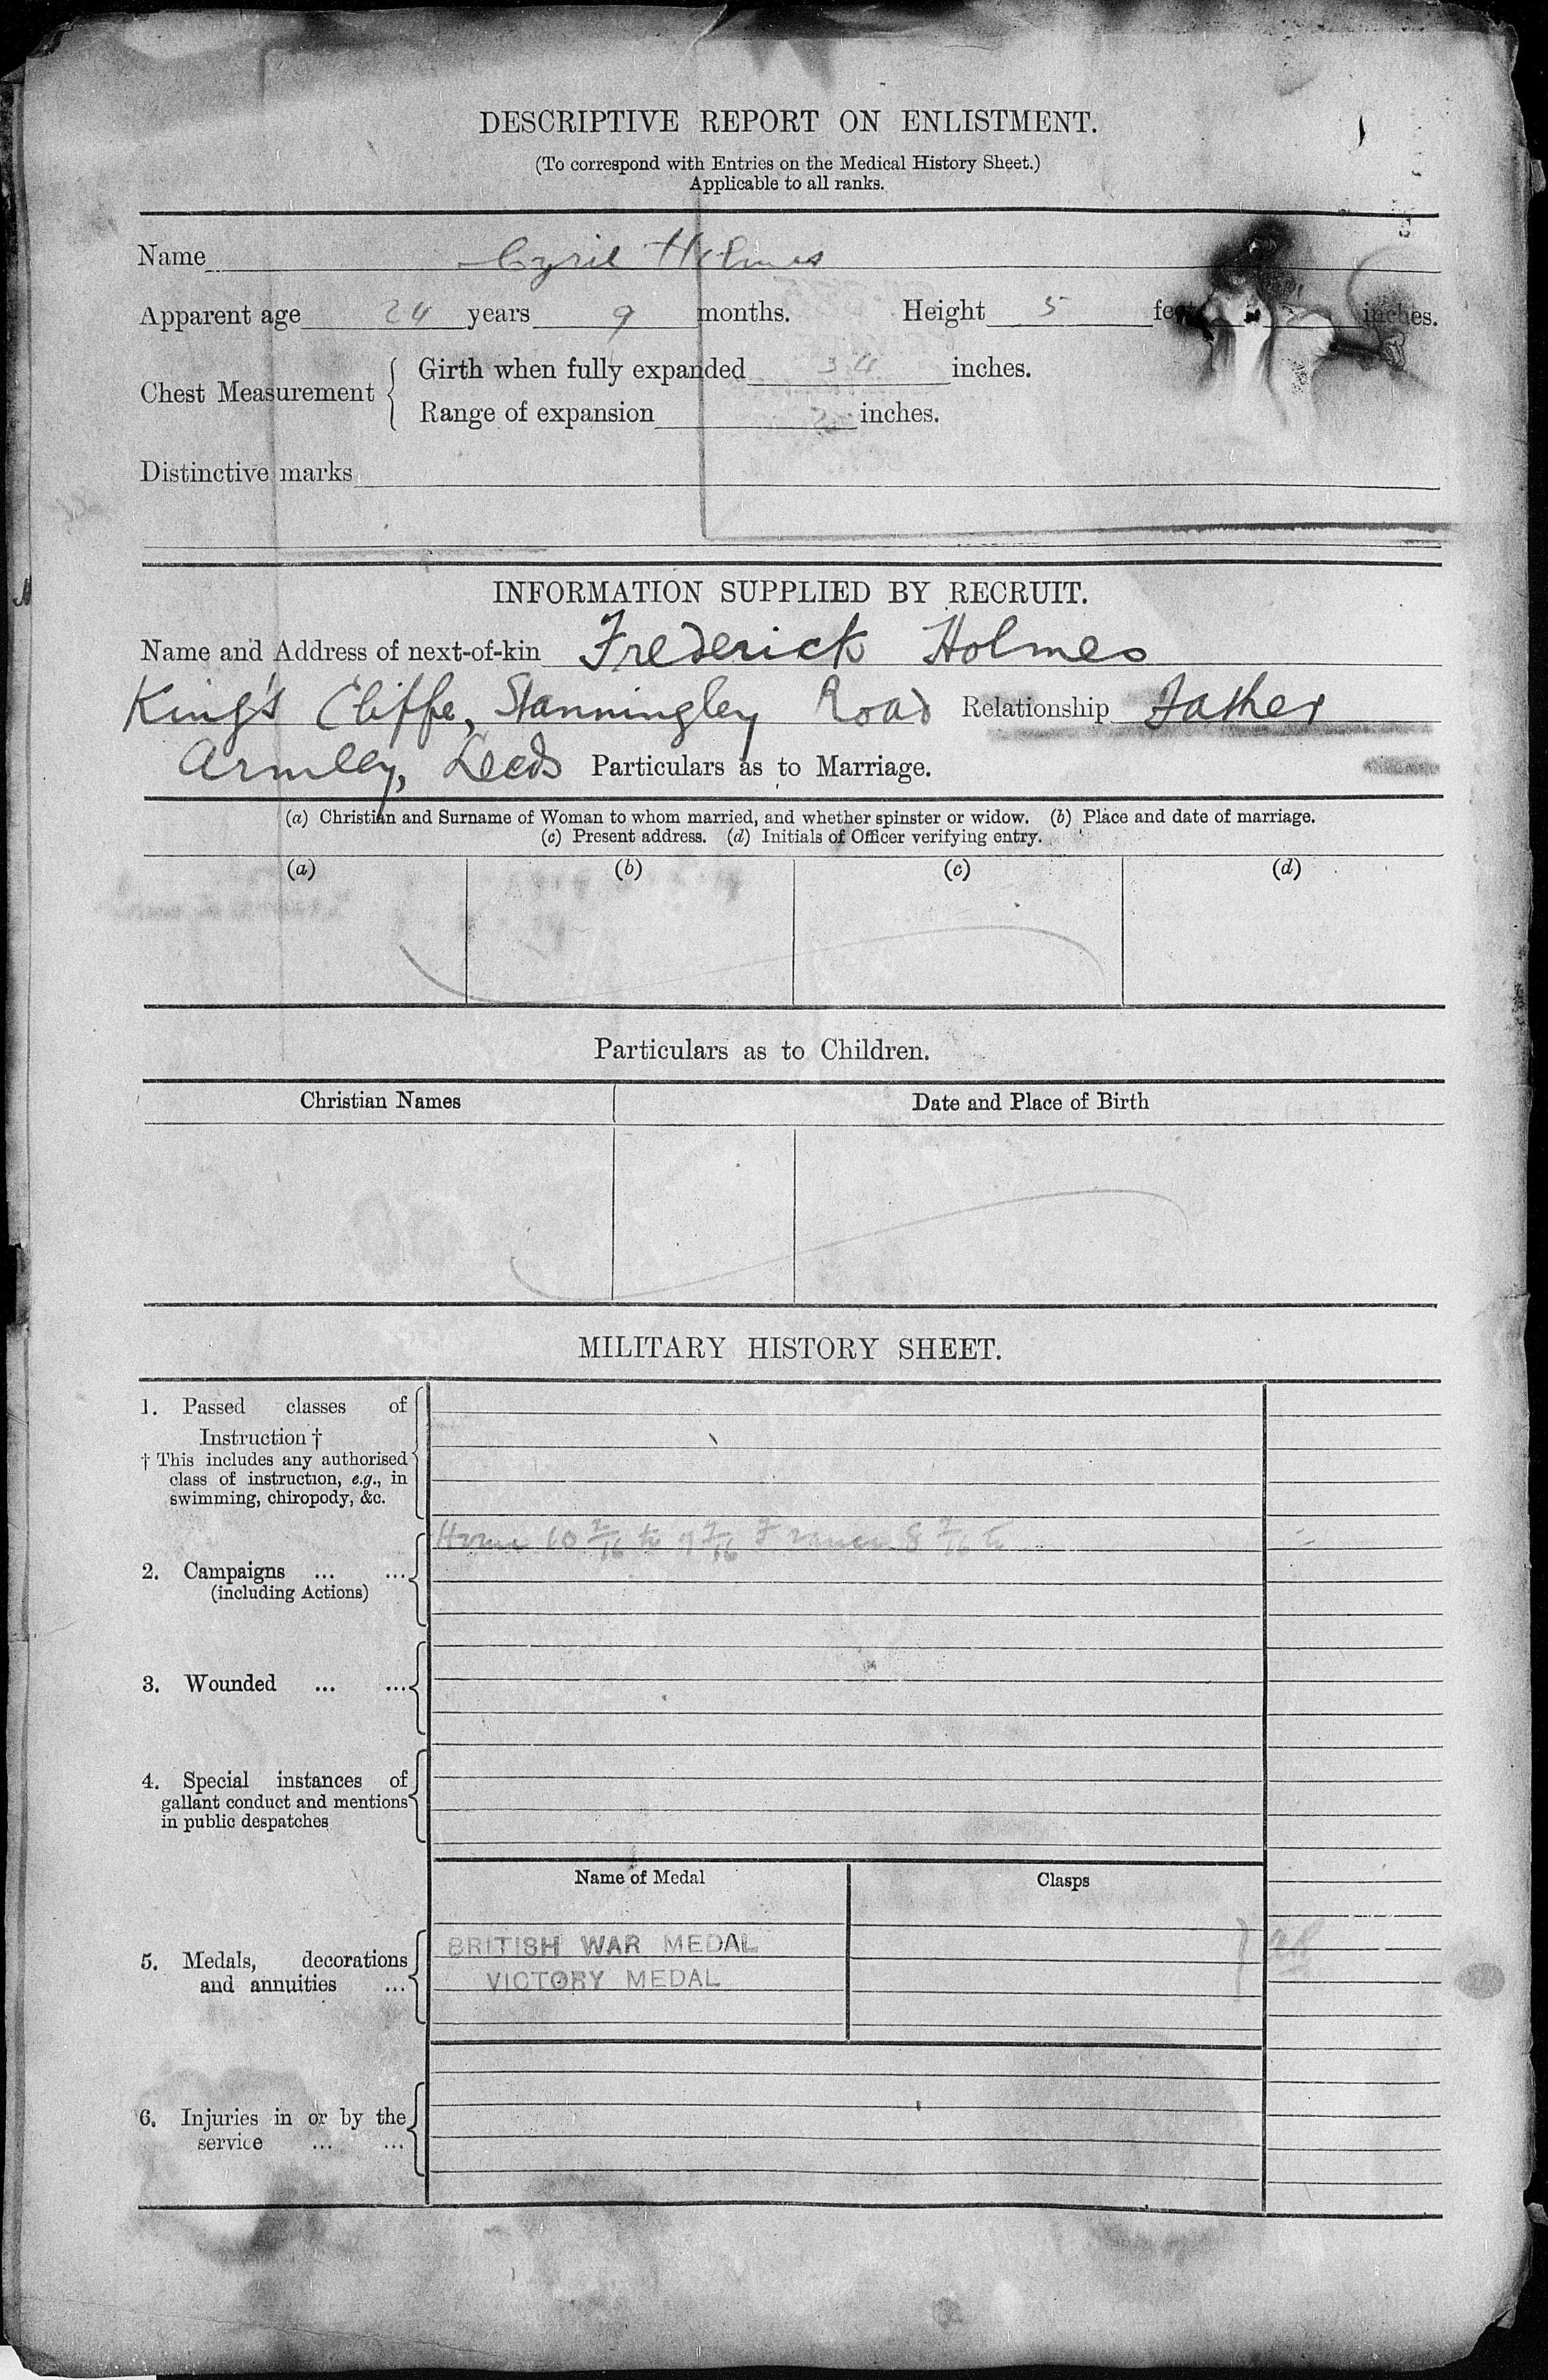 DESCRIPTIVE REPORT ON ENLISTMENT.
(To correspond with Entries on the Medical History Sheet.)
Applicable to all ranks.
Name Cyril Holmes
Apparent age 24 years 9 months. Height 5 feet inches.
Chest Measurement { Girth when fully expanded 34 inches.
Range of expansion inches.
Distinctive marks
INFORMATION SUPPLIED BY RECRUIT.
Name and Address of next-of-kin Frederick Holmes
King's Cliffe, Stanningley Road Relationship Father
Armley, Leeds Particulars as to Marriage.
(a) Christian and Surname of Woman to whom married, and whether spinster or widow. (b) Place and date of marriage.
(c) Present address. (d) Initials of Officer verifying entry.
(a) (b) (c) (d)
Particulars as to Children.
Christian Names Date and Place of Birth
MILITARY HISTORY SHEET.
1. Passed classes of
Instruction †
† This includes any authorised
class of instruction, e.g., in
swimming, chiropody, &c.
Home 10 2/16 to 7 7/16 France 8 7/16 to
2. Campaigns ... ...
(including Actions)
3. Wounded ... ...
4. Special instances of
gallant conduct and mentions
in public despatches
Name of Medal Clasps
BRITISH WAR MEDAL
5. Medals, decorations
VICTORY MEDAL
and annuities ...
6. Injuries in or by the
service ... ...